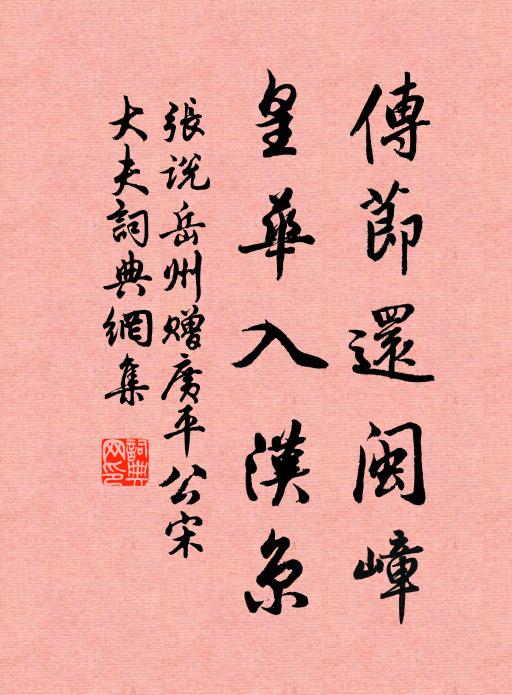 傳節還閩嶂
皇華入漢京
張説岳州贈廣平公宋
大夫詞典網集
詞典网印